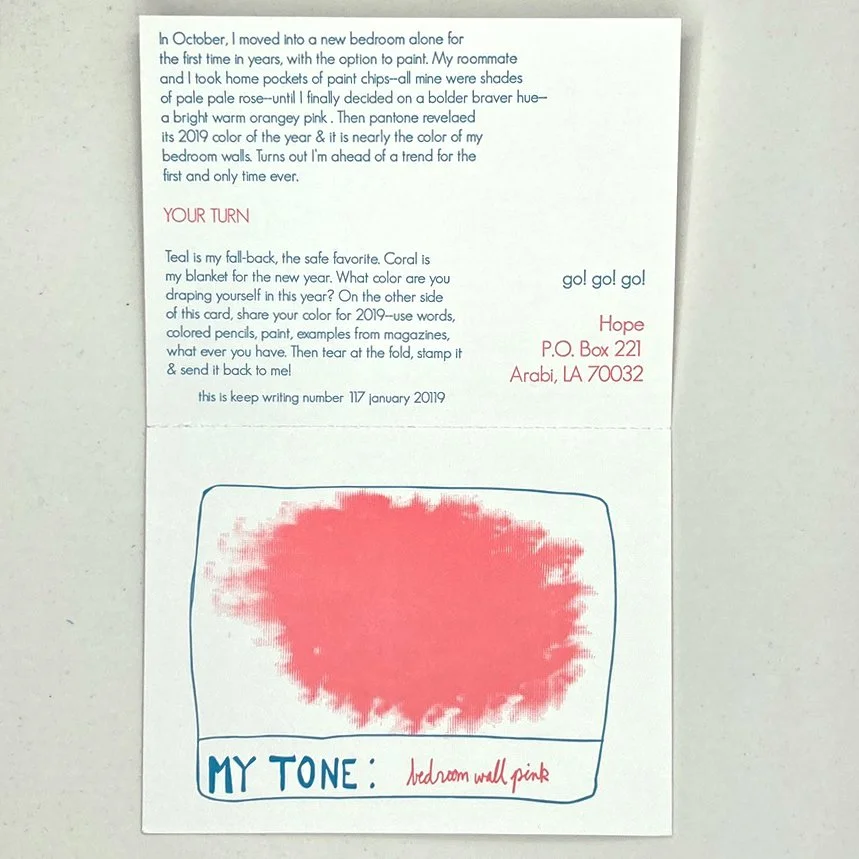 In October, I moved into a new bedroom alone for
the first time in years, with the option to paint. My roommate
and I took home pockets of paint chips--all mine were shades
of pale pale rose--until I finally decided on a bolder braver hue--
a bright warm orangey pink . Then pantone revelaed
its 2019 color of the year & it is nearly the color of my
bedroom walls. Turns out I'm ahead of a trend for the
first and only time ever.
YOUR TURN
Teal is my fall-back, the safe favorite. Coral is
my blanket for the new year. What color are you
draping yourself in this year? On the other side
of this card, share your color for 2019--use words,
colored pencils, paint, examples from magazines,
what ever you have. Then tear at the fold, stamp it
& send it back to me!
this is keep writing number 117 january 20119
go! go! go!
Hope
P.O. Box 221
Arabi, LA 70032
MY TONE: bedroom wall pink